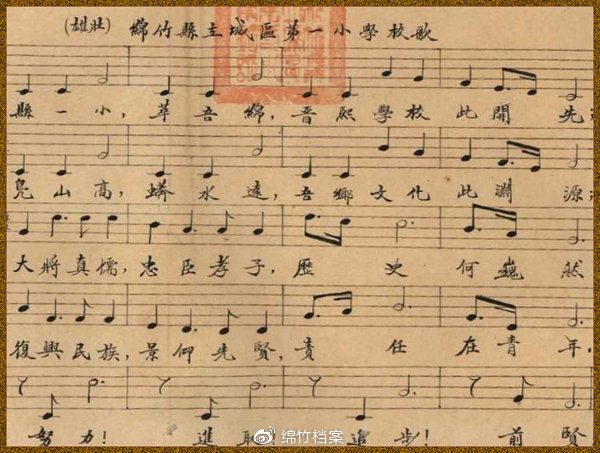 (雄壯) 綿竹縣立城區第一小學校歌
縣一小，萃吾綿，晋熙學校此開先；
山高，蟒水遠，吾鄉文化此淵源；
大將真儒，忠臣孝子，歷史何巍然
復興民族，景仰先賢，責任在青年，
努力！進 追步！前賢
绵竹档案